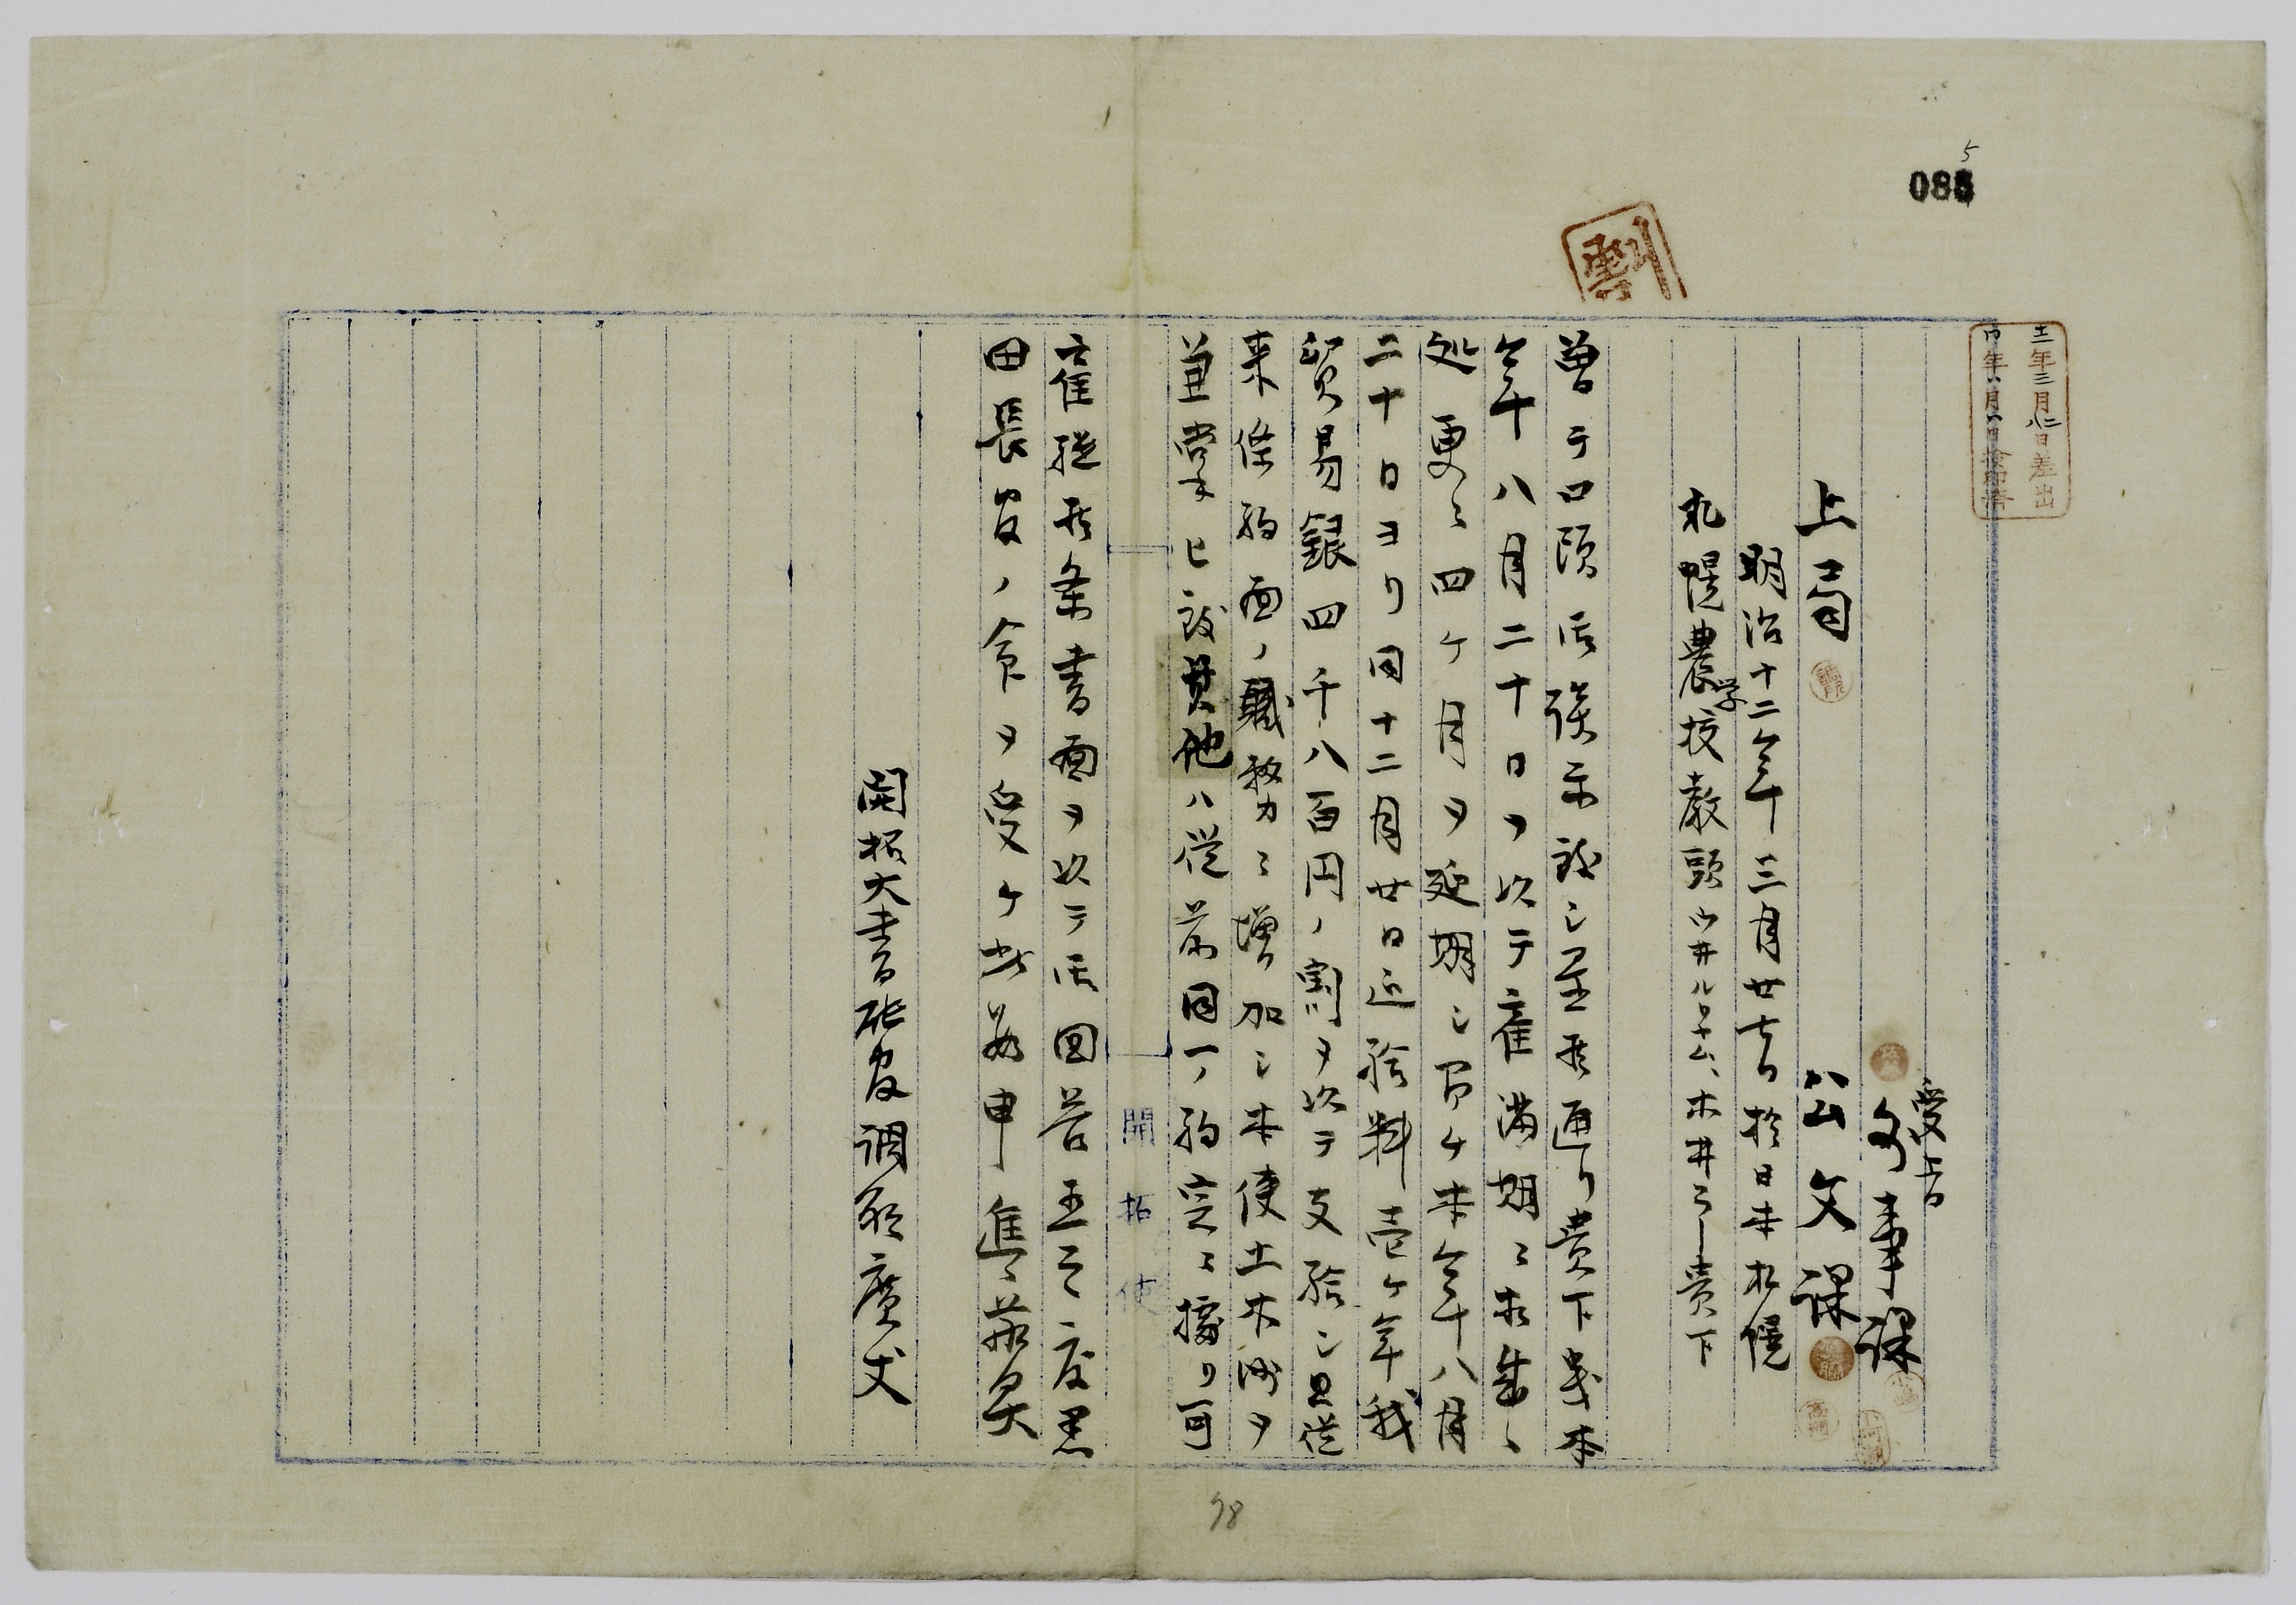 085
5
十二年三月廿八日差出
受付
文事課
上局 公文課
明治十二年三月廿七日於日本札幌
札幌農学校教頭ウ井ルリヤム、ホ井ーラー貴下
曽テ口頭御談示致シ置候通リ貴下義本
年八月二十日ヲ以テ雇満期ニ相成候
処更ニ四ケ月ヲ延期シ即チ本年八月
二十日ヨリ同十二月廿日迄給料壱ケ年我
貿易銀四千八百円ノ割ヲ以テ支給シ且従
来条約面ノ職務ニ増加シ本使土木術ヲ
兼掌セ被其他ハ従前同一ノ約定ニ據リ可
雇継候条書面ヲ以テ御回答有之度黒
田長官ノ命ヲ受ケ此段申進候敬具
開拓大書記官調所廣丈
開拓使
98